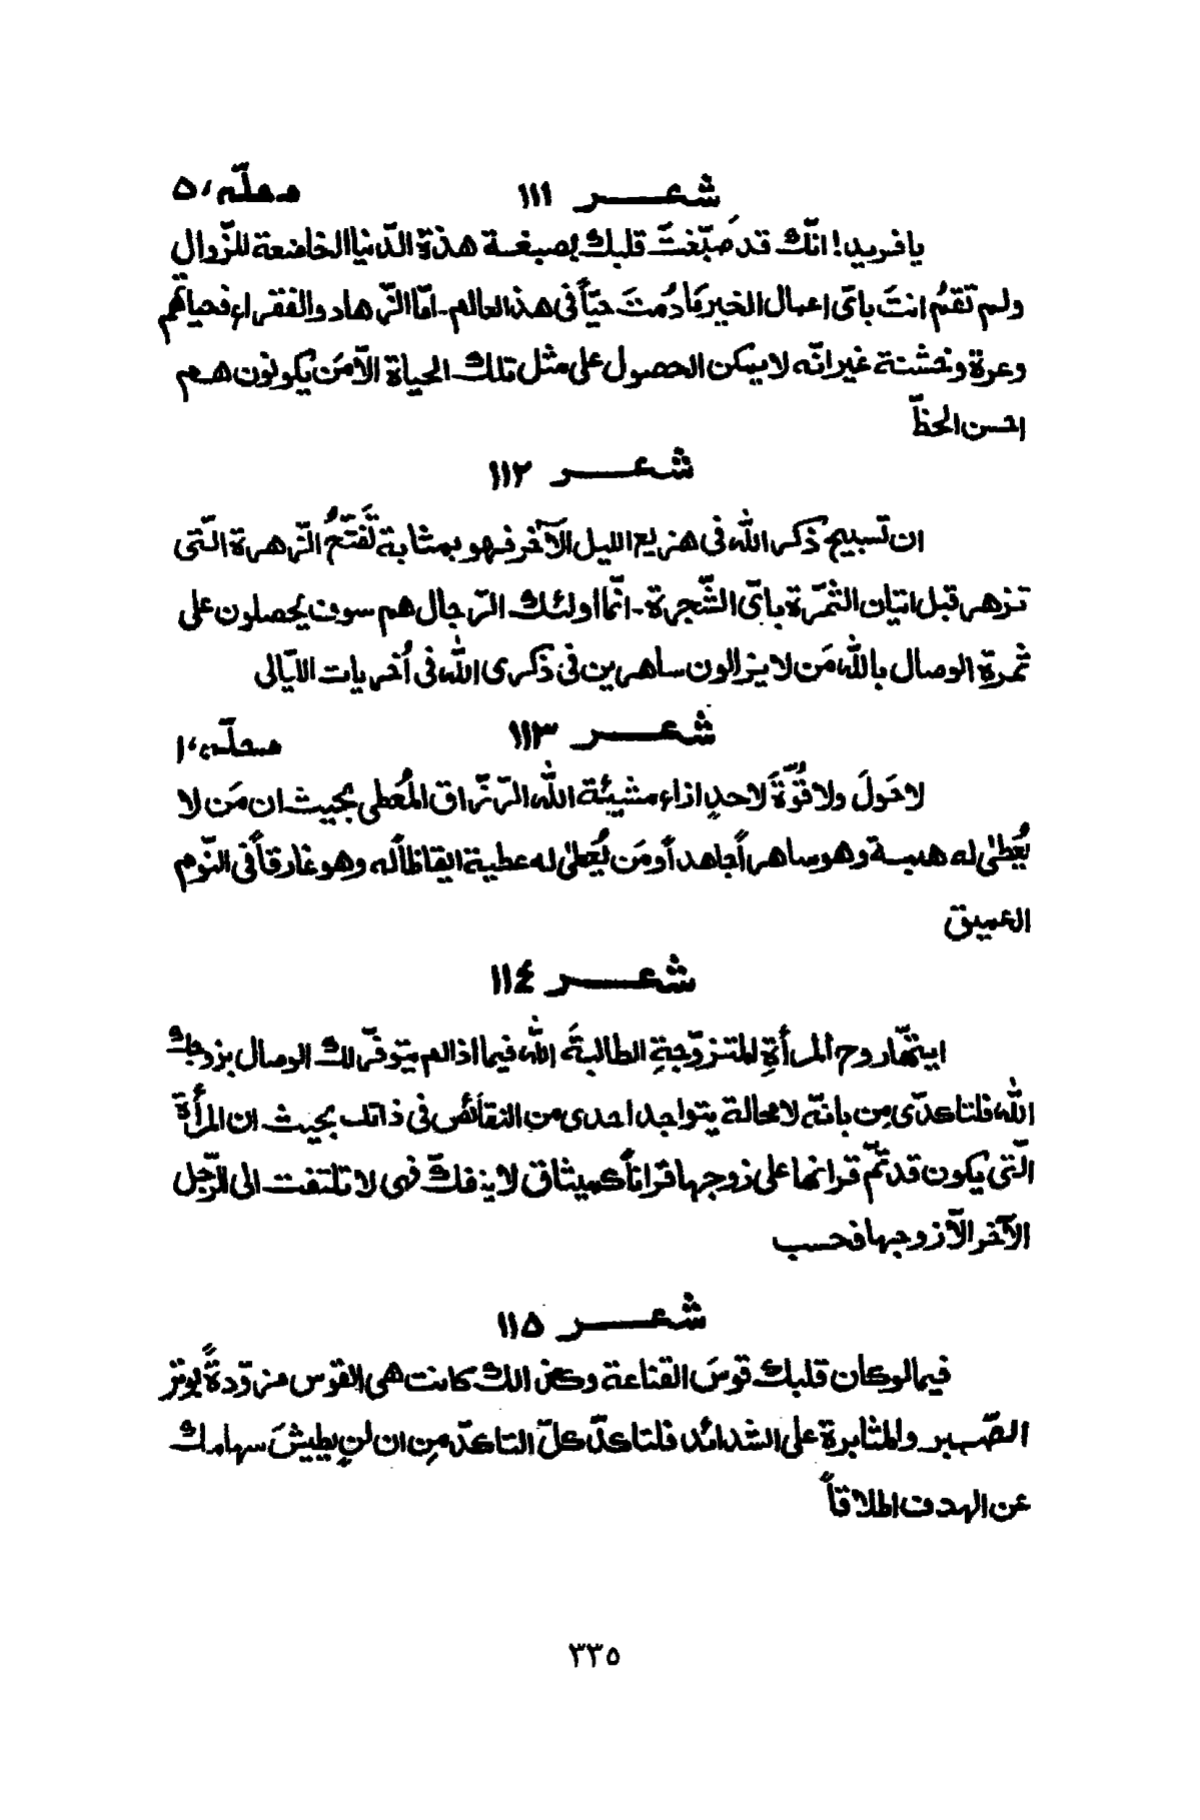 شعر ١١١ محلّه ٥،
يا فريد! انّك قد صَبّغتَ قلبك بصبغة هذة الدّنيا الخاضعة للزّوال
ولم تقمُ انتَ بایّ اعمال الخير مَا دُمتَ حيّاً فی هذ العالم۔ امّا الزّهاد والفقراء فحياتهم
وعرة وخشنة غير انّه لا يمكن الحصول علی مثل تلك الحياة الاّ مَن يكونون هم
احسن الحظّ
شعر ١١٢
ان تسبيح ذكر الله فی هزيع الليل الآخر فهو بمثابة تَفَتّحُ الزّهرة الّتی
تزهر قبل اتيان الثمّرة بایّ الشّجرة۔ انّما اولئك الرّجال هم سوف يحصلون علی
ثمرة الوصال بالله مَن لا يزالون ساهرين فی ذكری الله فی اُخريات اللّيالی
شعر ١١٣ محلّه ١،
لا حَولَ ولا قُوّةَ لاحدٍ ازاء مشيئة الله الرّزّاق المُعطی بحيث ان مَن لا
يُعطیٰ له هبة وهو ساهراً جاهداً ومَن يُعطیٰ له عطية ايقاظاً له وهو غارقاً فی النّوم
العميق
شعر ١١٤
ايتهّا روح المرأةِ المتزوّجةِ الطالبةَ الله فيما اذا لم يتوفّر لك الوصال بزوجك
الله فلتاكدّی مِن بانّه لا محالة يتواجد احدی من النقائص فی ذاتك بحيث ان المرأة
الّتی يكون قد تمّ قرانها علی زوجها قراناً كميثاق لا ينفكّ فهی لا تلتفت الی الرّجل
الآخر الاّ زوجها فحسب
شعر ١١٥
فيما لو كان قلبك قوسَ القناعة وكذالك كانت هی القوس مزوّدةً بوتر
الصّبر والمثابرة علی الشدائد فلتاكدّ كلّ التاكدّ مِن ان لن يطيشَ سهامك
عن الهدف اطلاقاً
٣٣٥